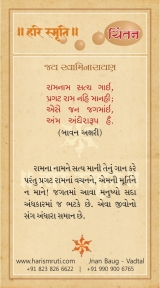 ॥ હરિ સ્મૃતિ ॥
ચિંતન
જય સ્વામિનારાયણ
રામનામ સત્ય ગાઈ,
પ્રગટ રામ નહિ માનહી;
એસે જન જગમાંઈ,
અંધ અંધેરારૂપ હૈ.
(બાવન અક્ષરી)
રામના નામને સત્ય માની તેનું ગાન કરે
પરંતુ પ્રગટ રામનાં વચનને, એમની મૂર્તિને
ન માને! જગતમાં આવા મનુષ્યો સદા
અંધકારમાં જ ભટકે છે. એવા જીવોનો
સંગ અંધારા સમાન છે.
www.harismruti.com
Jnan Baug - Vadtal
+91 823 826 6622
+91 990 900 6765